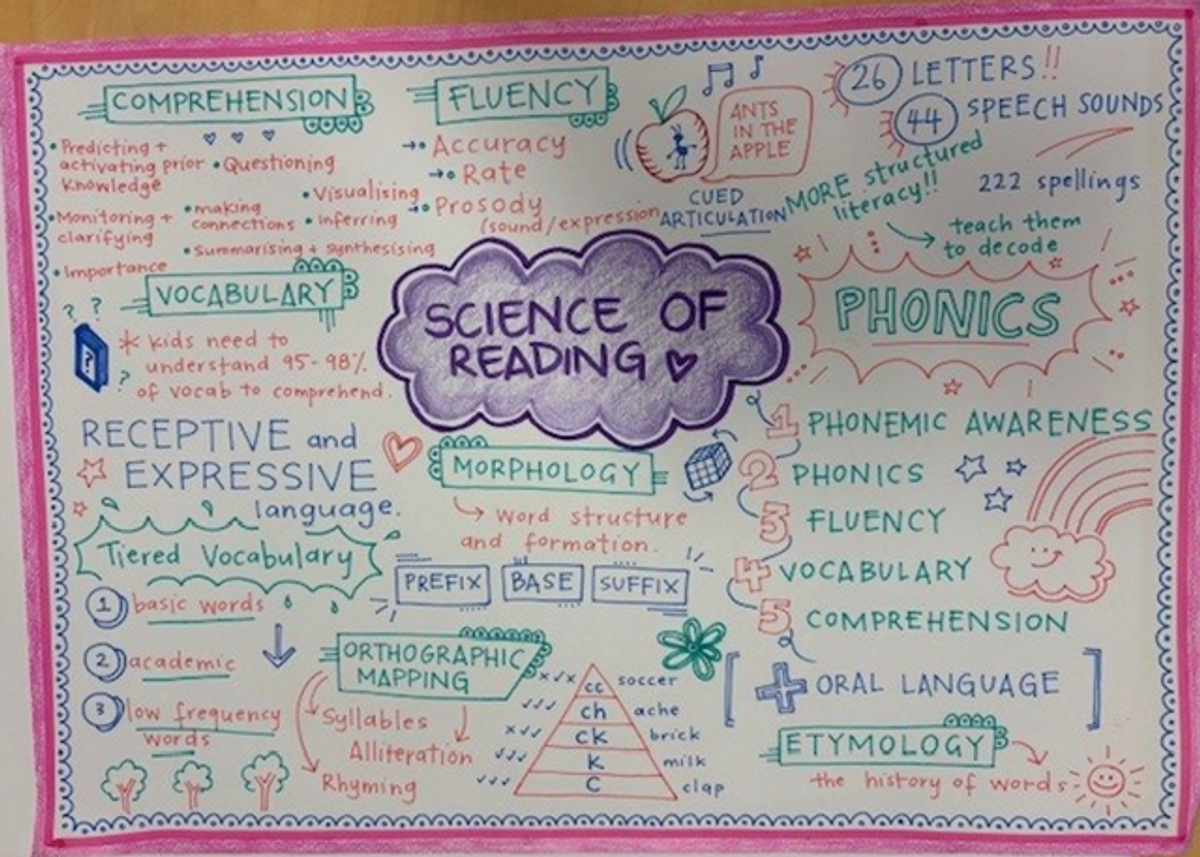 COMPREHENSION
• Predicting +
activating prior
Knowledge
• Questioning
• Visualising
• Monitoring +
clarifying
• making
connections
• Inferring
• Summarising + synthesising
• Importance
FLUENCY
Accuracy
Rate
Prosody
(sound/expression
ANTS
IN THE
APPLE
CUED
ARTICULATION
26 LETTERS!!
44 SPEECH SOUNDS
222 spellings
MORE structured
literacy!!
teach them
to decode
PHONICS
SCIENCE OF
READING
VOCABULARY
? ?
?
?
* kids need to
understand 95-98%
of vocab to comprehend.
RECEPTIVE and
EXPRESSIVE
language.
Tiered Vocabulary
1 basic words
2 academic
3 low frequency
words
MORPHOLOGY
word structure
and formation.
PREFIX BASE SUFFIX
ORTHOGRAPHIC
MAPPING
Syllables
Alliteration
Rhyming
x✓x cc soccer
✓✓✓ ch ache
x✓✓ ck brick
✓✓✓ k milk
✓✓✓ C clap
1 PHONEMIC AWARENESS
2 PHONICS
3 FLUENCY
4 VOCABULARY
5 COMPREHENSION
[ + ORAL LANGUAGE ]
ETYMOLOGY
the history of words